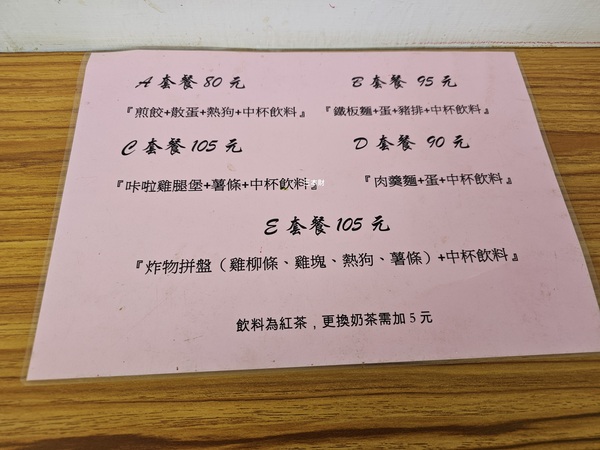 A 套餐 80 元
B 套餐 95 元
『煎餃+散蛋+熱狗+中杯飲料』
『鐵板麵+蛋+豬排+中杯飲料』
C 套餐 105 元
D 套餐 90 元
『咔啦雞腿堡+薯條+中杯飲料』
『肉羹麵+蛋+中杯飲料』
E 套餐 105 元
『炸物拼盤（雞柳條、雞塊、熱狗、薯條）+中杯飲料』
飲料為紅茶，更換奶茶需加 5 元